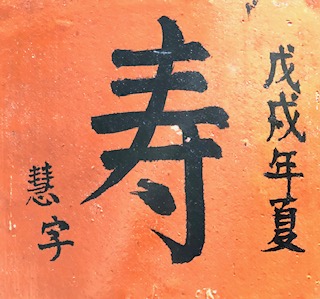 戊戌年夏
寿
慧字